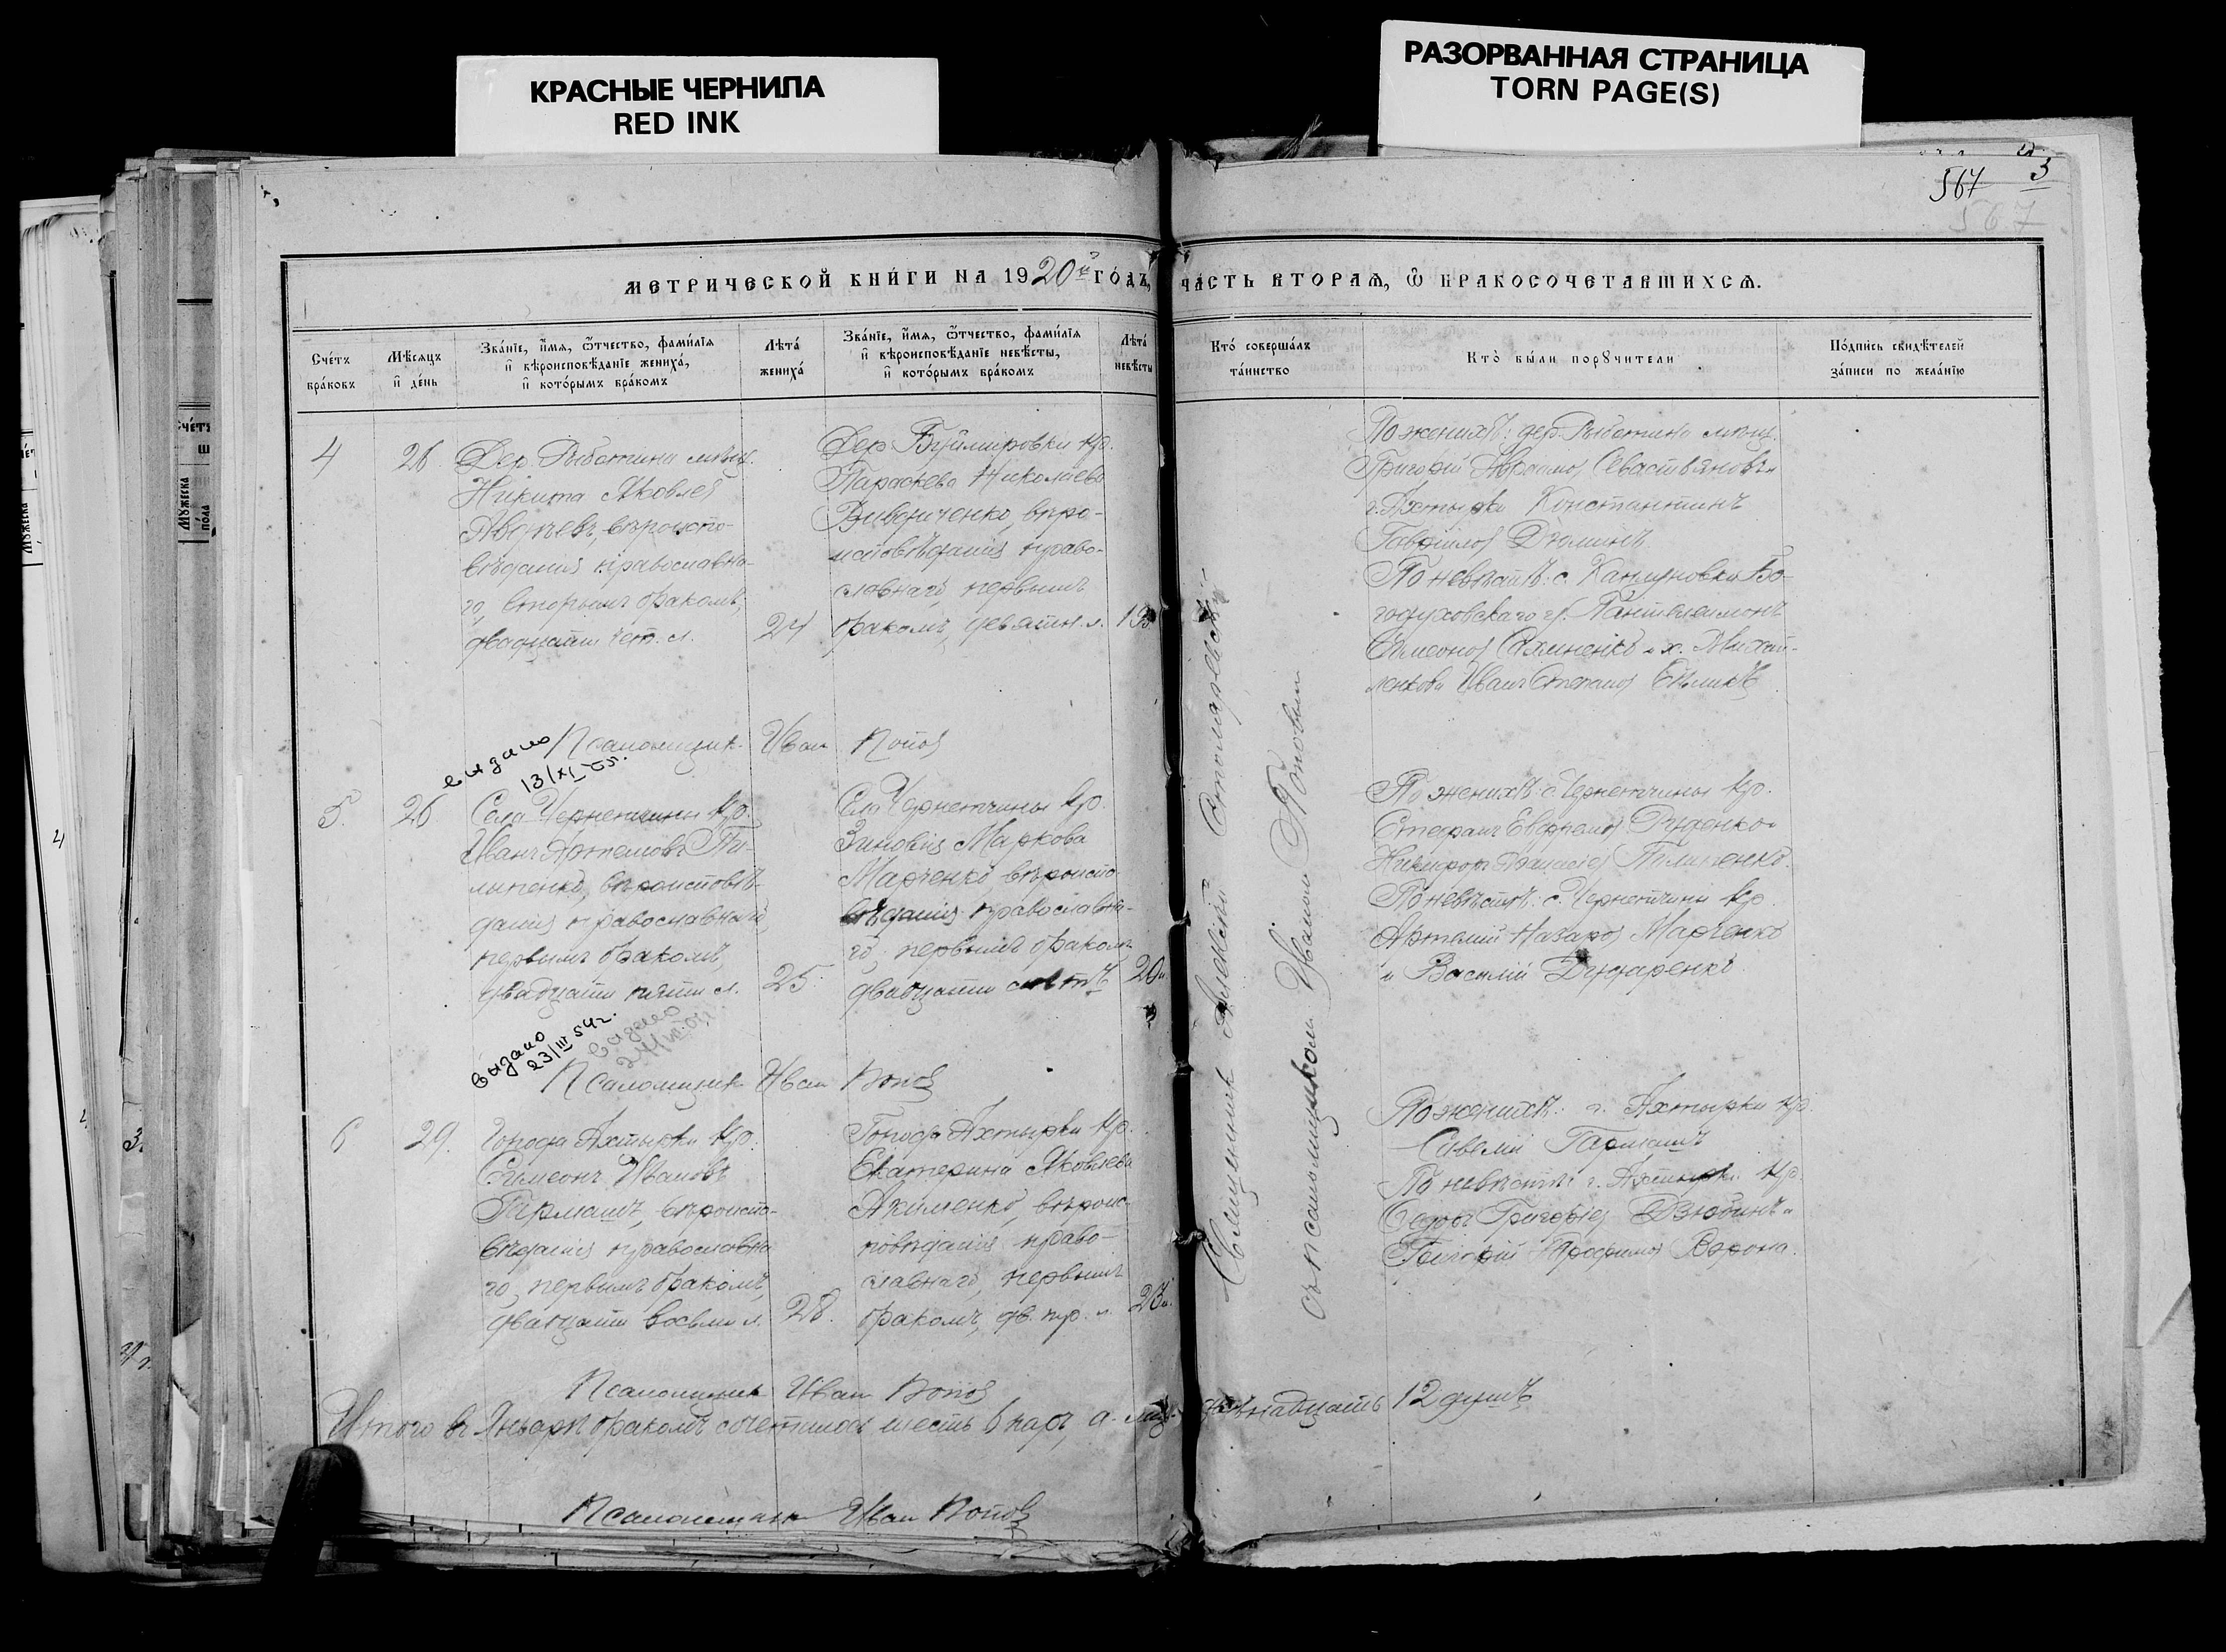 КРАСНЫЕ ЧЕРНИЛА
RED INK
РАЗОРВАННАЯ СТРАНИЦА
TORN PAGE(S)
567 3
567
МЕТРИЧЕСКОЙ КНИ́ГИ НА 1920й ГО́ДЪ, ЧА́СТЬ ВТОРАѦ, Ѿ БРАКОСОЧЕТАВШИХСѦ.
Сче́тъ
бра́ковъ
Мѣ́сѧцъ
и҆ де́нь
Зва́нїе, и҆́мѧ, ѻ҆́тчество, фами́лїѧ
и҆ вѣроисповѣ́данїе жениха̀,
и҆ кото́рымъ бра́комъ
Лѣта̀
жениха̀
Зва́нїе, и҆́мѧ, ѻ҆́тчество, фами́лїѧ
и҆ вѣроисповѣ́данїе невѣ́сты,
и҆ кото́рымъ бра́комъ
Лѣта̀
невѣ́сты
Кто̀ соверша́лъ
та́инство
Кто̀ бы́ли порꙋчители
По́дпись свидѣ́телей
за́писи по жела́нїю
4
26
Дер. Рыботина мѣщ.
Никита Яковлев
вѣроиспо-
вѣданія православна-
го, вторымъ бракомъ,
двадцати чет. л.
24
Дер. Буймировки кр.
Параскева Николаева
вѣро-
исповѣданія право-
славнаго, первымъ
бракомъ, девятн. л.
19
По женихѣ: дер. Рыботина мѣщ.
Григорій Авраамов Севастьяновъ и
г. Ахтырки Константинъ
Гаврилов Дёминъ
По невѣстѣ: с. Каплуновки Бо-
годуховскаго у. Пантелеимонъ
Симеонов и х. Михай-
ленкова Иванъ Степанов
Псаломщик Иван Попов
выдано
13/XI 55.
5.
26
Села Чернетчины кр.
Иванъ Артемовъ Пи-
липенко, вѣроисповѣ-
данія православнаго,
первымъ бракомъ,
двадцати пяти л.
25.
Села Чернетчины кр.
Зиновія Маркова
Марченко, вѣроиспо-
вѣданія православна-
го, первымъ бракомъ
двадцати лѣтъ
20
По женихѣ: с. Чернетчины кр.
Стефанъ Руденко и
Никифоръ Пилипенко.
По невѣстѣ: с. Чернетчины кр.
Артемій Назаров Марченко
и Василій
выдано
23/III 54 г.
выдано
Псаломщик Иван Попов
6
29.
Города Ахтырки кр.
Симеонъ Ивановъ
Гармашъ, вѣроиспо-
вѣданія православна
го, первымъ бракомъ,
двадцати восьми л.
28.
Города Ахтырки кр.
Екатерина Яковлева
Акименко, вѣроис-
повѣданія право-
славнаго, первымъ
бракомъ, дв. тр. л.
23
По женихѣ: г. Ахтырки кр.
Савелій Гармашъ
По невѣстѣ: г. Ахтырки кр.
Ѳедоръ Григоріев Дзюбинъ и
Григорій Трофимов Ворона.
Священник Алексій
съ псаломщиком Иваном Поповым
Псаломщик Иван Попов
Итого въ Январѣ бракомъ сочеталось шесть 6 паръ, а лиц двѣнадцать 12 душъ
Псаломщик Иван Попов